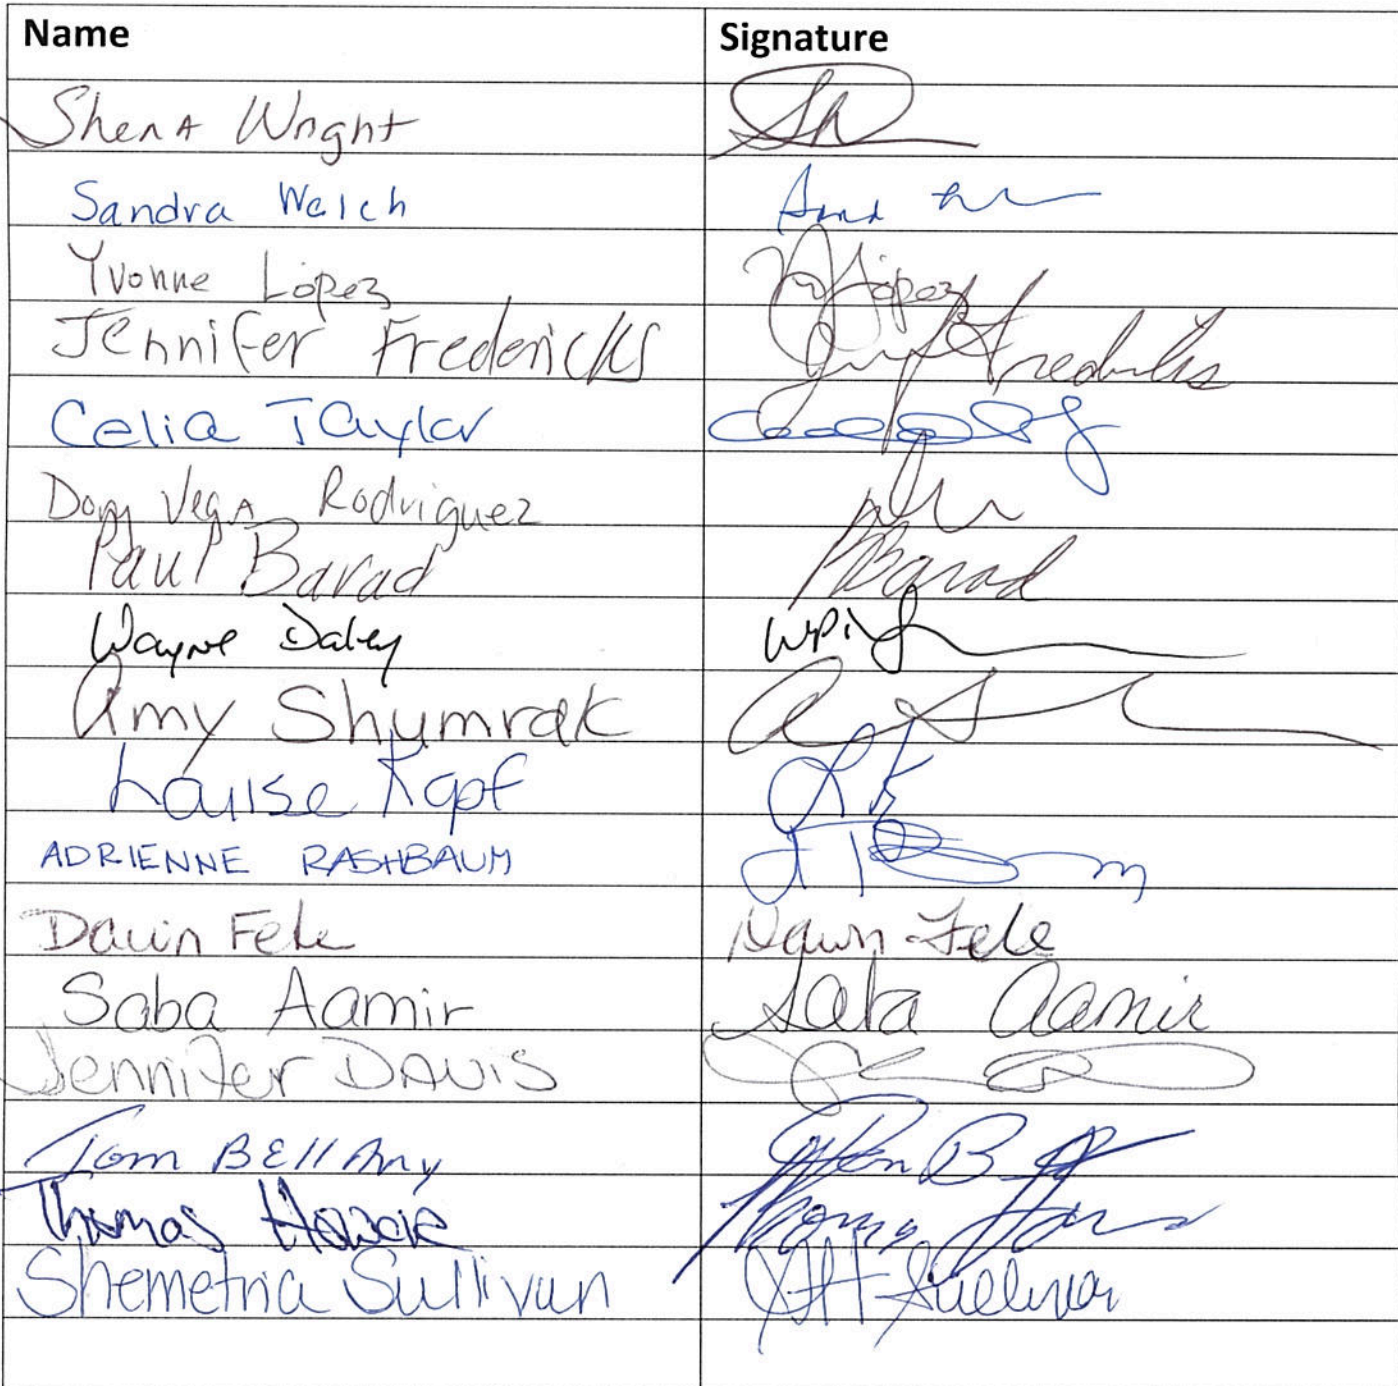 Name Signature
Shena Wright
Sandra Welch
Yvonne Lopez YLopez
Jennifer Fredericks Jennifer Fredericks
Celia Taylor
Dory Vega Rodriguez
Paul Barad PBarad
Wayne Daley
Amy Shumrak
Louise Kapf LK
ADRIENNE RASHBAUM
Dawn Fete Dawn Fete
Saba Aamir Saba Aamir
Jennifer DAVIS
Tom BEllAmy
Thomas
Shemetria Sullivan Sullivan